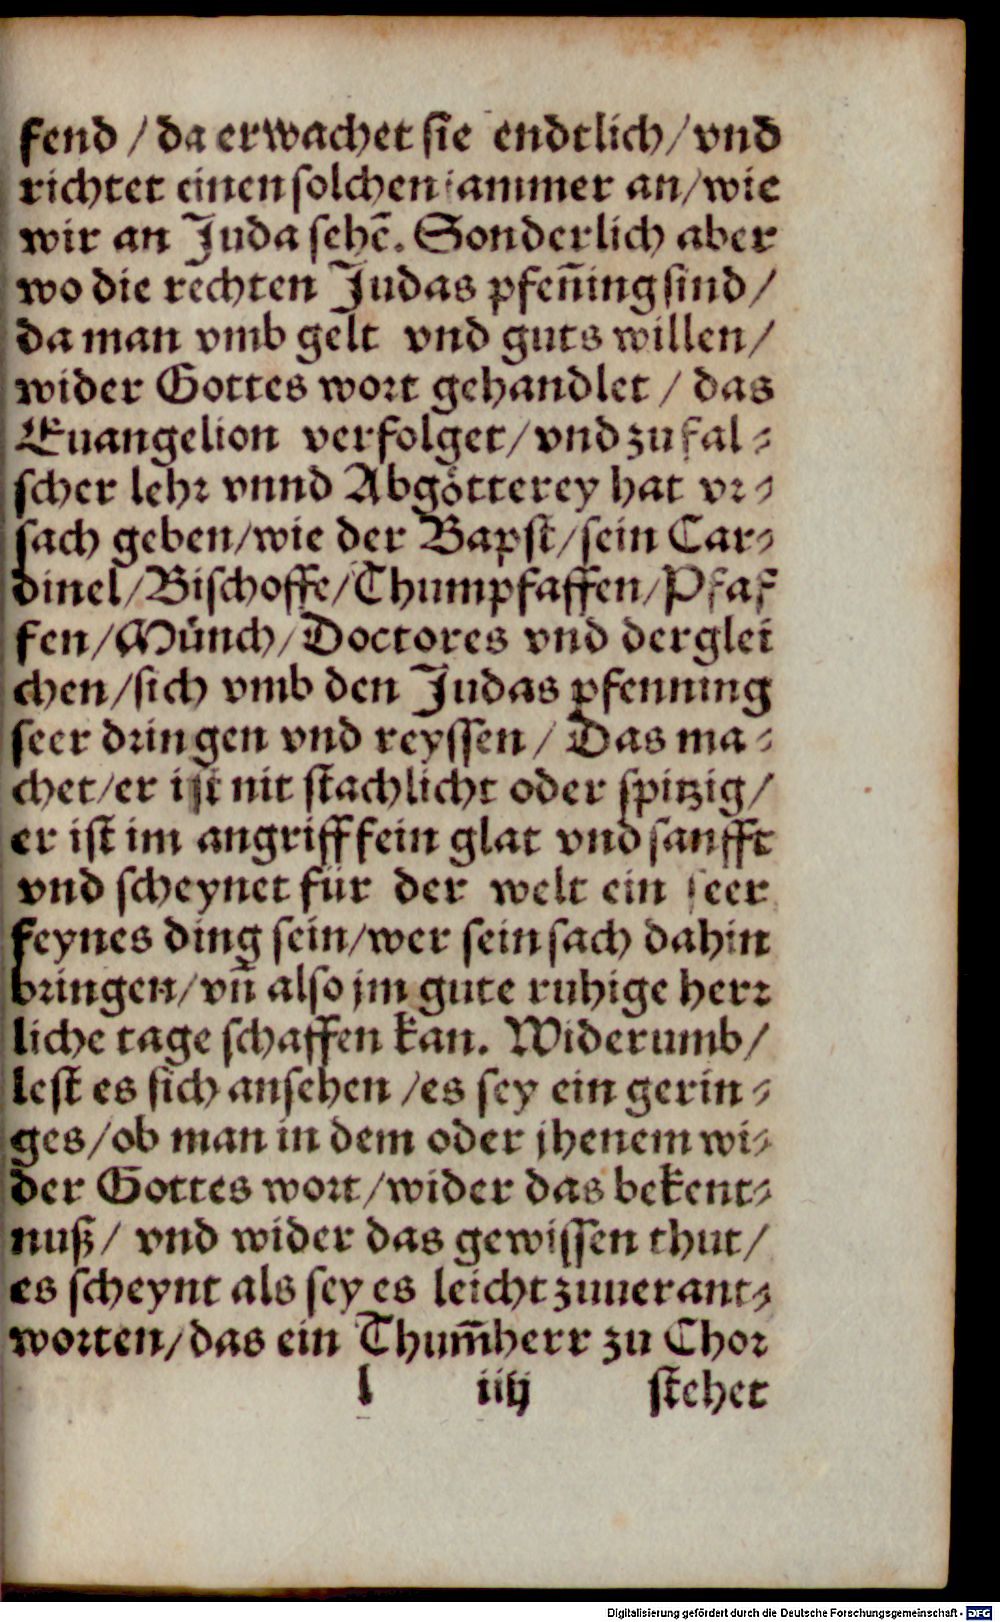 fend / da erwachet sie endtlich / vnd
richtet einen solchen iammer an / wie
wir an Juda sehē. Sonderlich aber
wo die rechten Judas pfeñing sind /
da man vmb gelt vnd guts willen /
wider Gottes wort gehandlet / das
Euangelion verfolget / vnd zu fal⸗
scher lehr vnnd Abgötterey hat vr⸗
sach geben / wie der Bapst / sein Car⸗
dinel / Bischoffe / Thumpfaffen / Pfaf
fen / Münch / Doctores vnd derglei
chen / sich vmb den Judas pfenning
seer dringen vnd reyssen / Das ma⸗
chet / er ist nit stachlicht oder spitzig /
er ist im angriff fein glat vnd sanfft
vnd scheynet für der welt ein seer
feynes ding sein / wer sein sach dahin
bringen / vñ also jm gute ruhige herr
liche tage schaffen kan. Widerumb /
lest es sich ansehen / es sey ein gerin⸗
ges / ob man in dem oder jhenem wi⸗
der Gottes wort / wider das bekent⸗
nuß / vnd wider das gewissen thut /
es scheynt als sey es leicht zuuerant⸗
worten / das ein Thum̄herr zu Chor
l iiij stehet
Digitalisierung gefördert durch die Deutsche Forschungsgemeinschaft - DFG